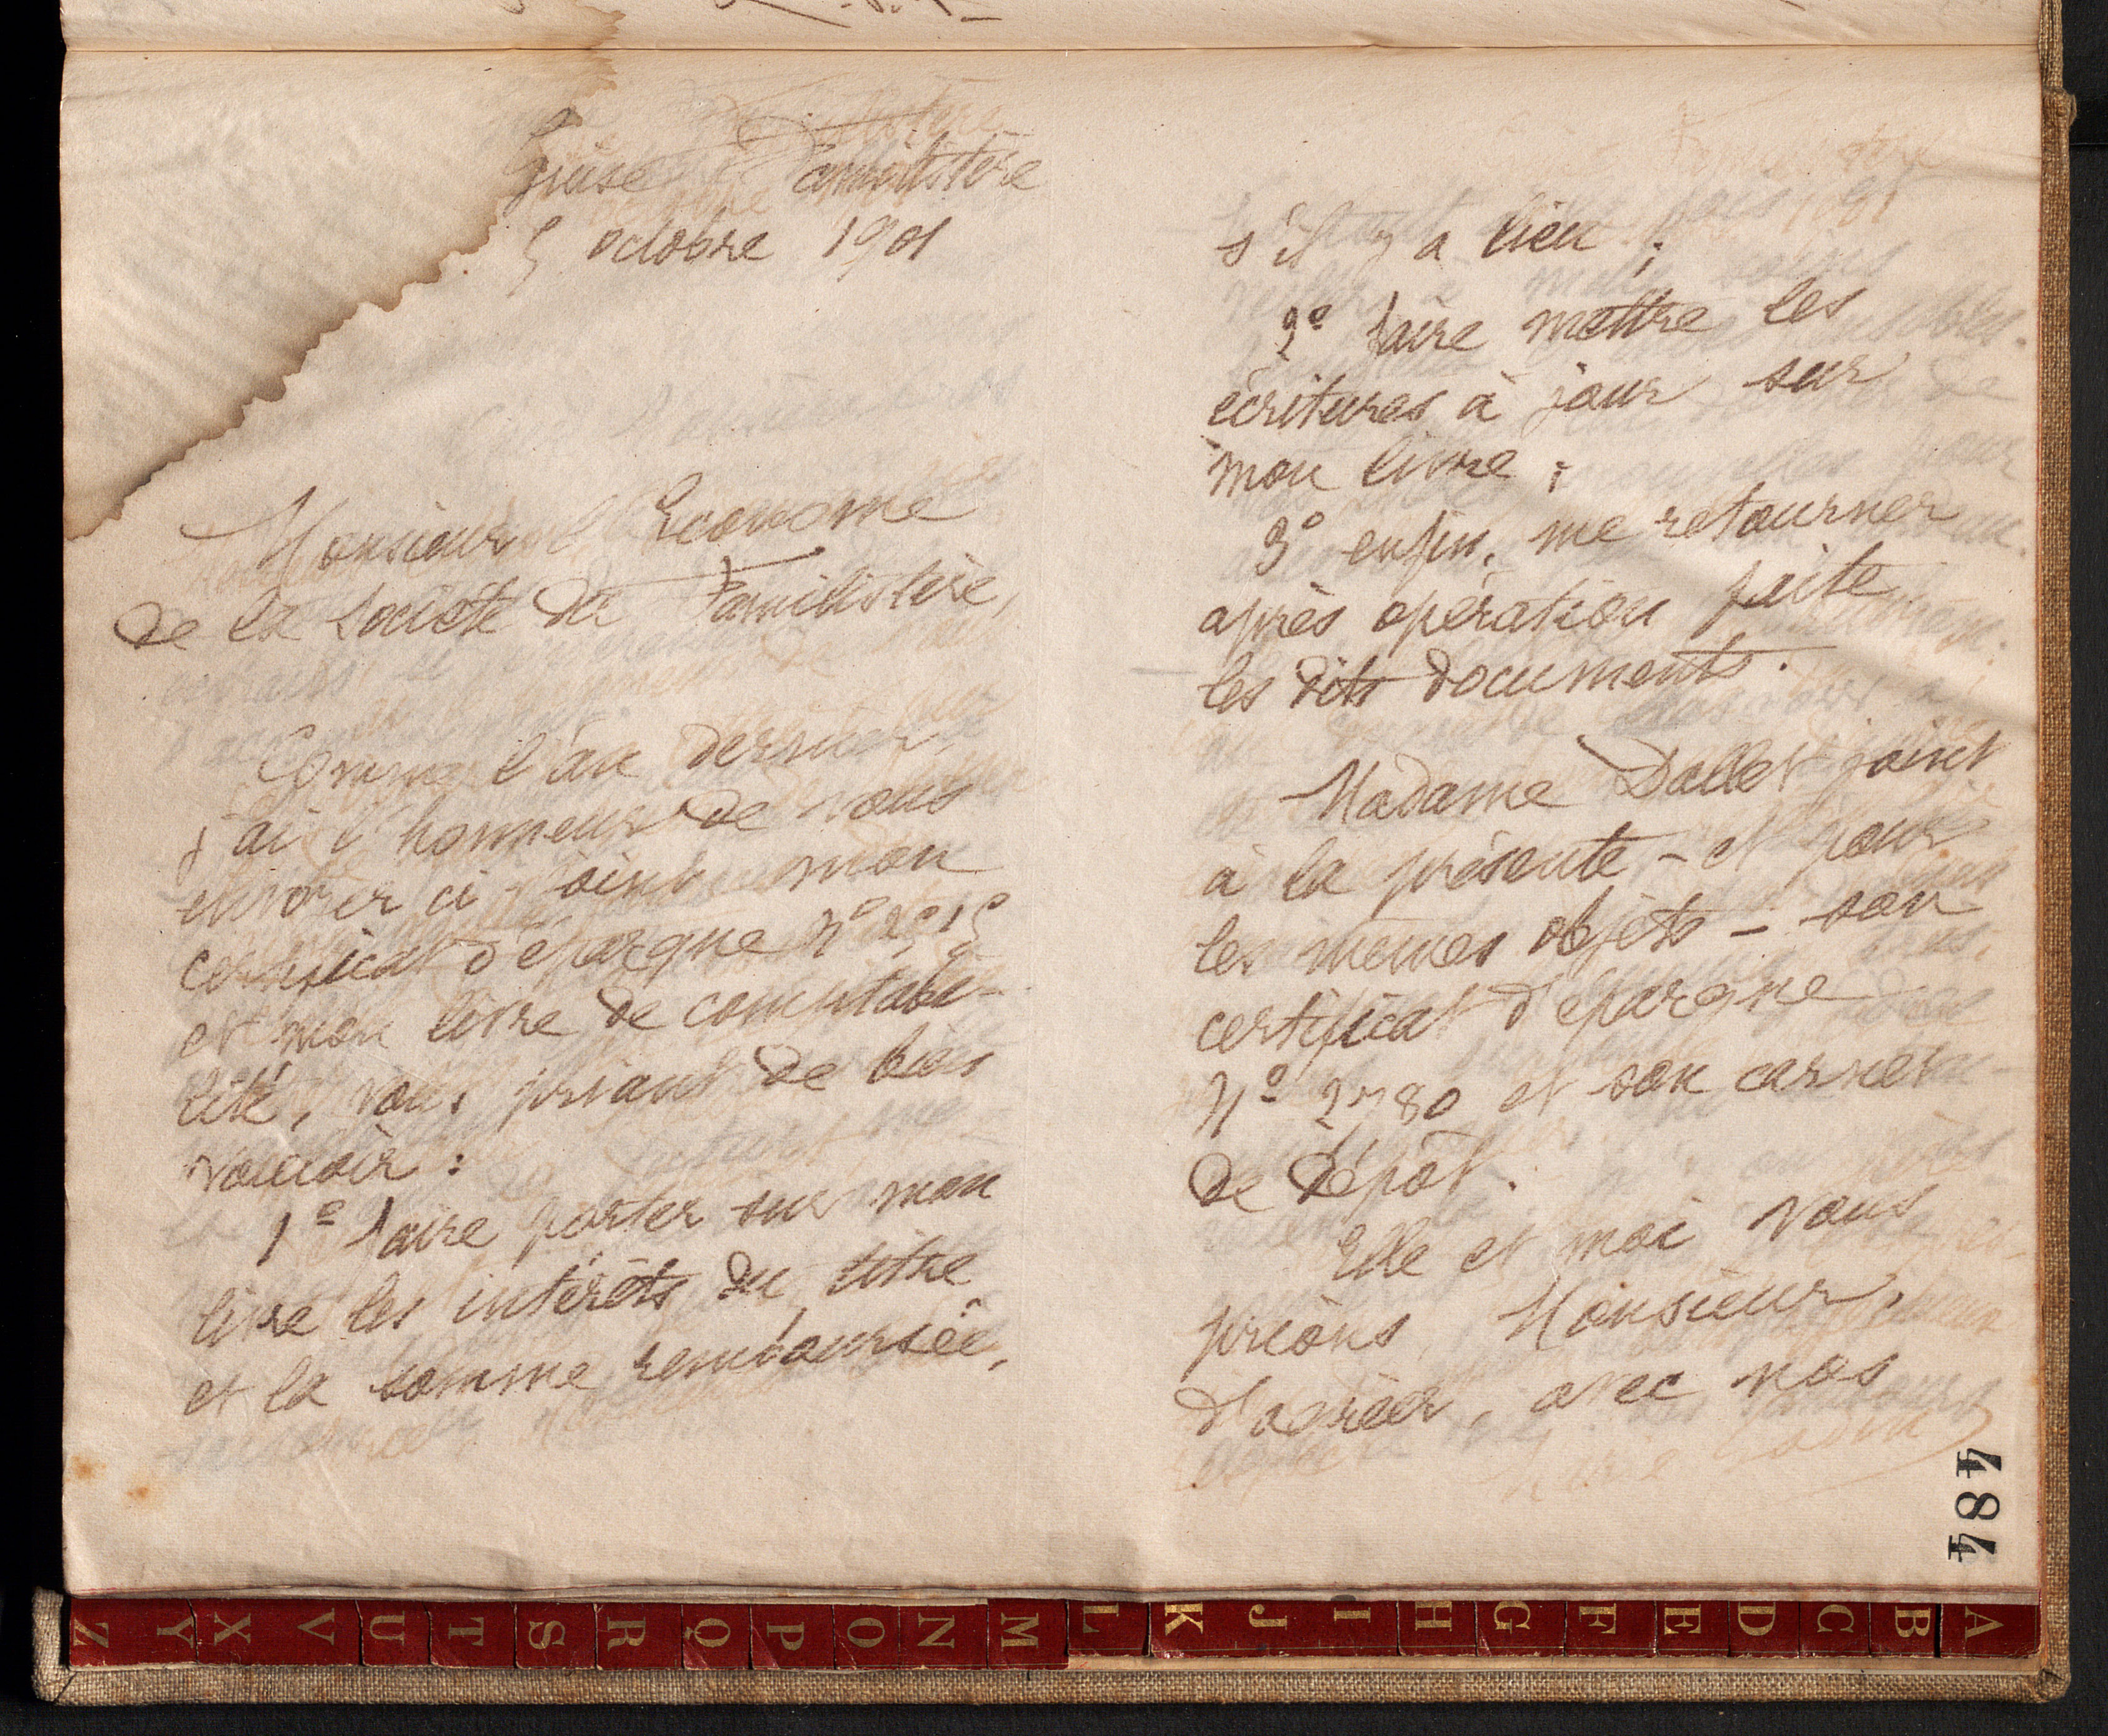 Guise Familistère
5 octobre 1901
Monsieur l'Econome
de la Société du Familistère,
Comme l'an dernier
j'ai l'honneur de vous
envoyer ci joint mon
certificat d'épargne N°
et mon livre de comptabi-
lité, vous priant de bien
vouloir :
1° faire porter sur mon
livre les intérêts du titre
et la somme remboursée,
s'il y a lieu ;
2° faire mettre les
écritures à jour sur
mon livre ;
3° enfin, me retourner
après opération faite
les dits documents.
Madame Dallet joint
à la présente - et pour
les mêmes objets - son
certificat d'épargne
N° 2780 et son carnet
de dépôt.
Elle et moi vous
prions, Monsieur,
d'agréer, avec nos
484
Z Y X V U T S R Q P O N M L K J I H G F E D C B A